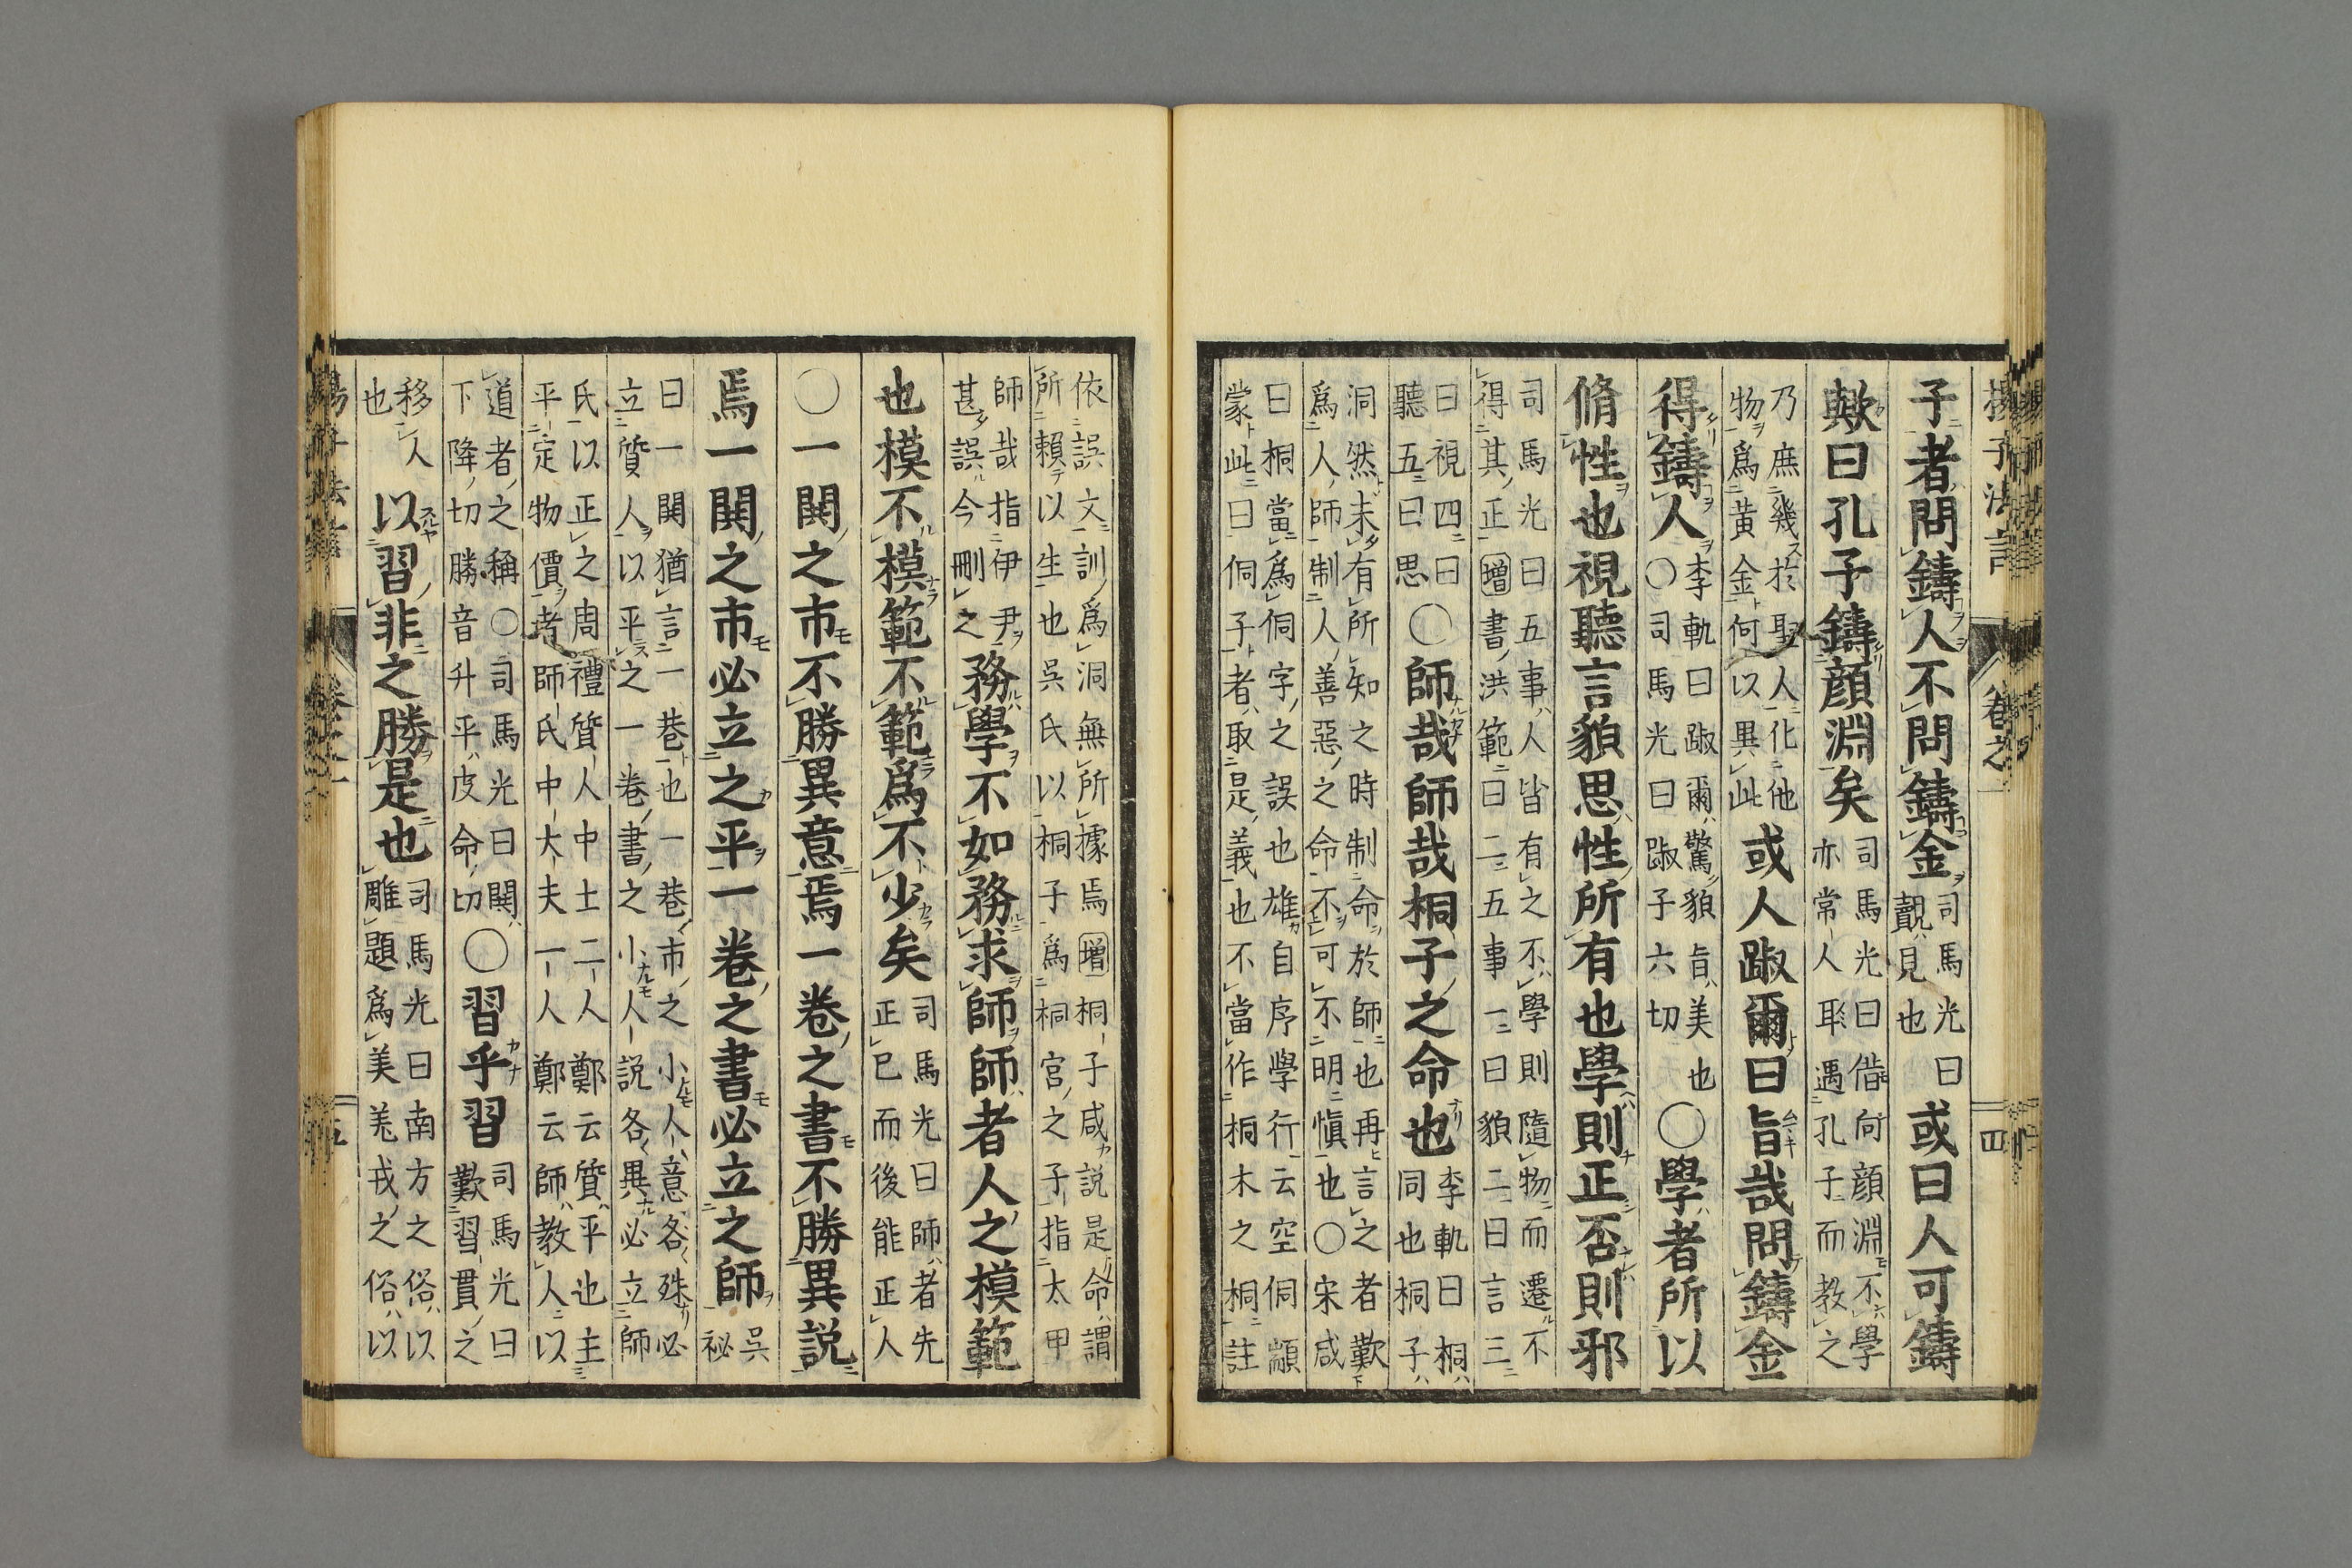 揚子法言 卷之一 四
子者問鑄人不問鑄金
司馬光曰
覿見也
或曰人可鑄
歟曰孔子鑄顔淵矣
司馬光曰借向顔淵不學
亦常人耳遇孔子而教之
乃庶幾於聖人化他
物爲黃金何以異此
或人踧爾曰旨哉問鑄金
得鑄人
李軌曰踧爾驚貌旨美也
○司馬光曰踧子六切
○學者所以
脩性也視聽言貌思性所有也學則正否則邪
司馬光曰五事人皆有之不學則隨物而遷不
得其正増書洪範曰二五事一曰貌二曰言三
曰視四曰
聽五曰思
○師哉師哉桐子之命也
李軌曰桐
同也桐子
洞然未有所知之時制命於師也再言之者歎
爲人師制人善惡之命不可不明愼也○宋咸
曰桐當爲侗字之誤也雄自序學行云空侗顓
蒙此曰侗子者取是義也不當作桐木之桐註
依誤文訓爲洞無所據焉増桐子咸説是命謂
所賴以生也吳氏以桐子爲桐宮之子指太甲
師哉指伊尹
甚誤今刪之
務學不如務求師師者人之模範
也模不模範不範爲不少矣
司馬光曰師者先
正己而後能正人
○一閧之市不勝異意焉一卷之書不勝異説
焉一閧之市必立之平一卷之書必立之師
吳
祕
曰一閧猶言一巷也一巷市之小人意各殊必
立質人以平之一卷書之小人説各異必立師
氏以正之周禮質人中士二人鄭云質平也主
平定物價者師氏中大夫一人鄭云師教人以
道者之稱○司馬光曰閧
下降切勝音升平皮命切
○習乎習
司馬光曰
歎習貫之
移人
也
以習非之勝是也
司馬光曰南方之俗以
雕題爲美羗戎之俗以